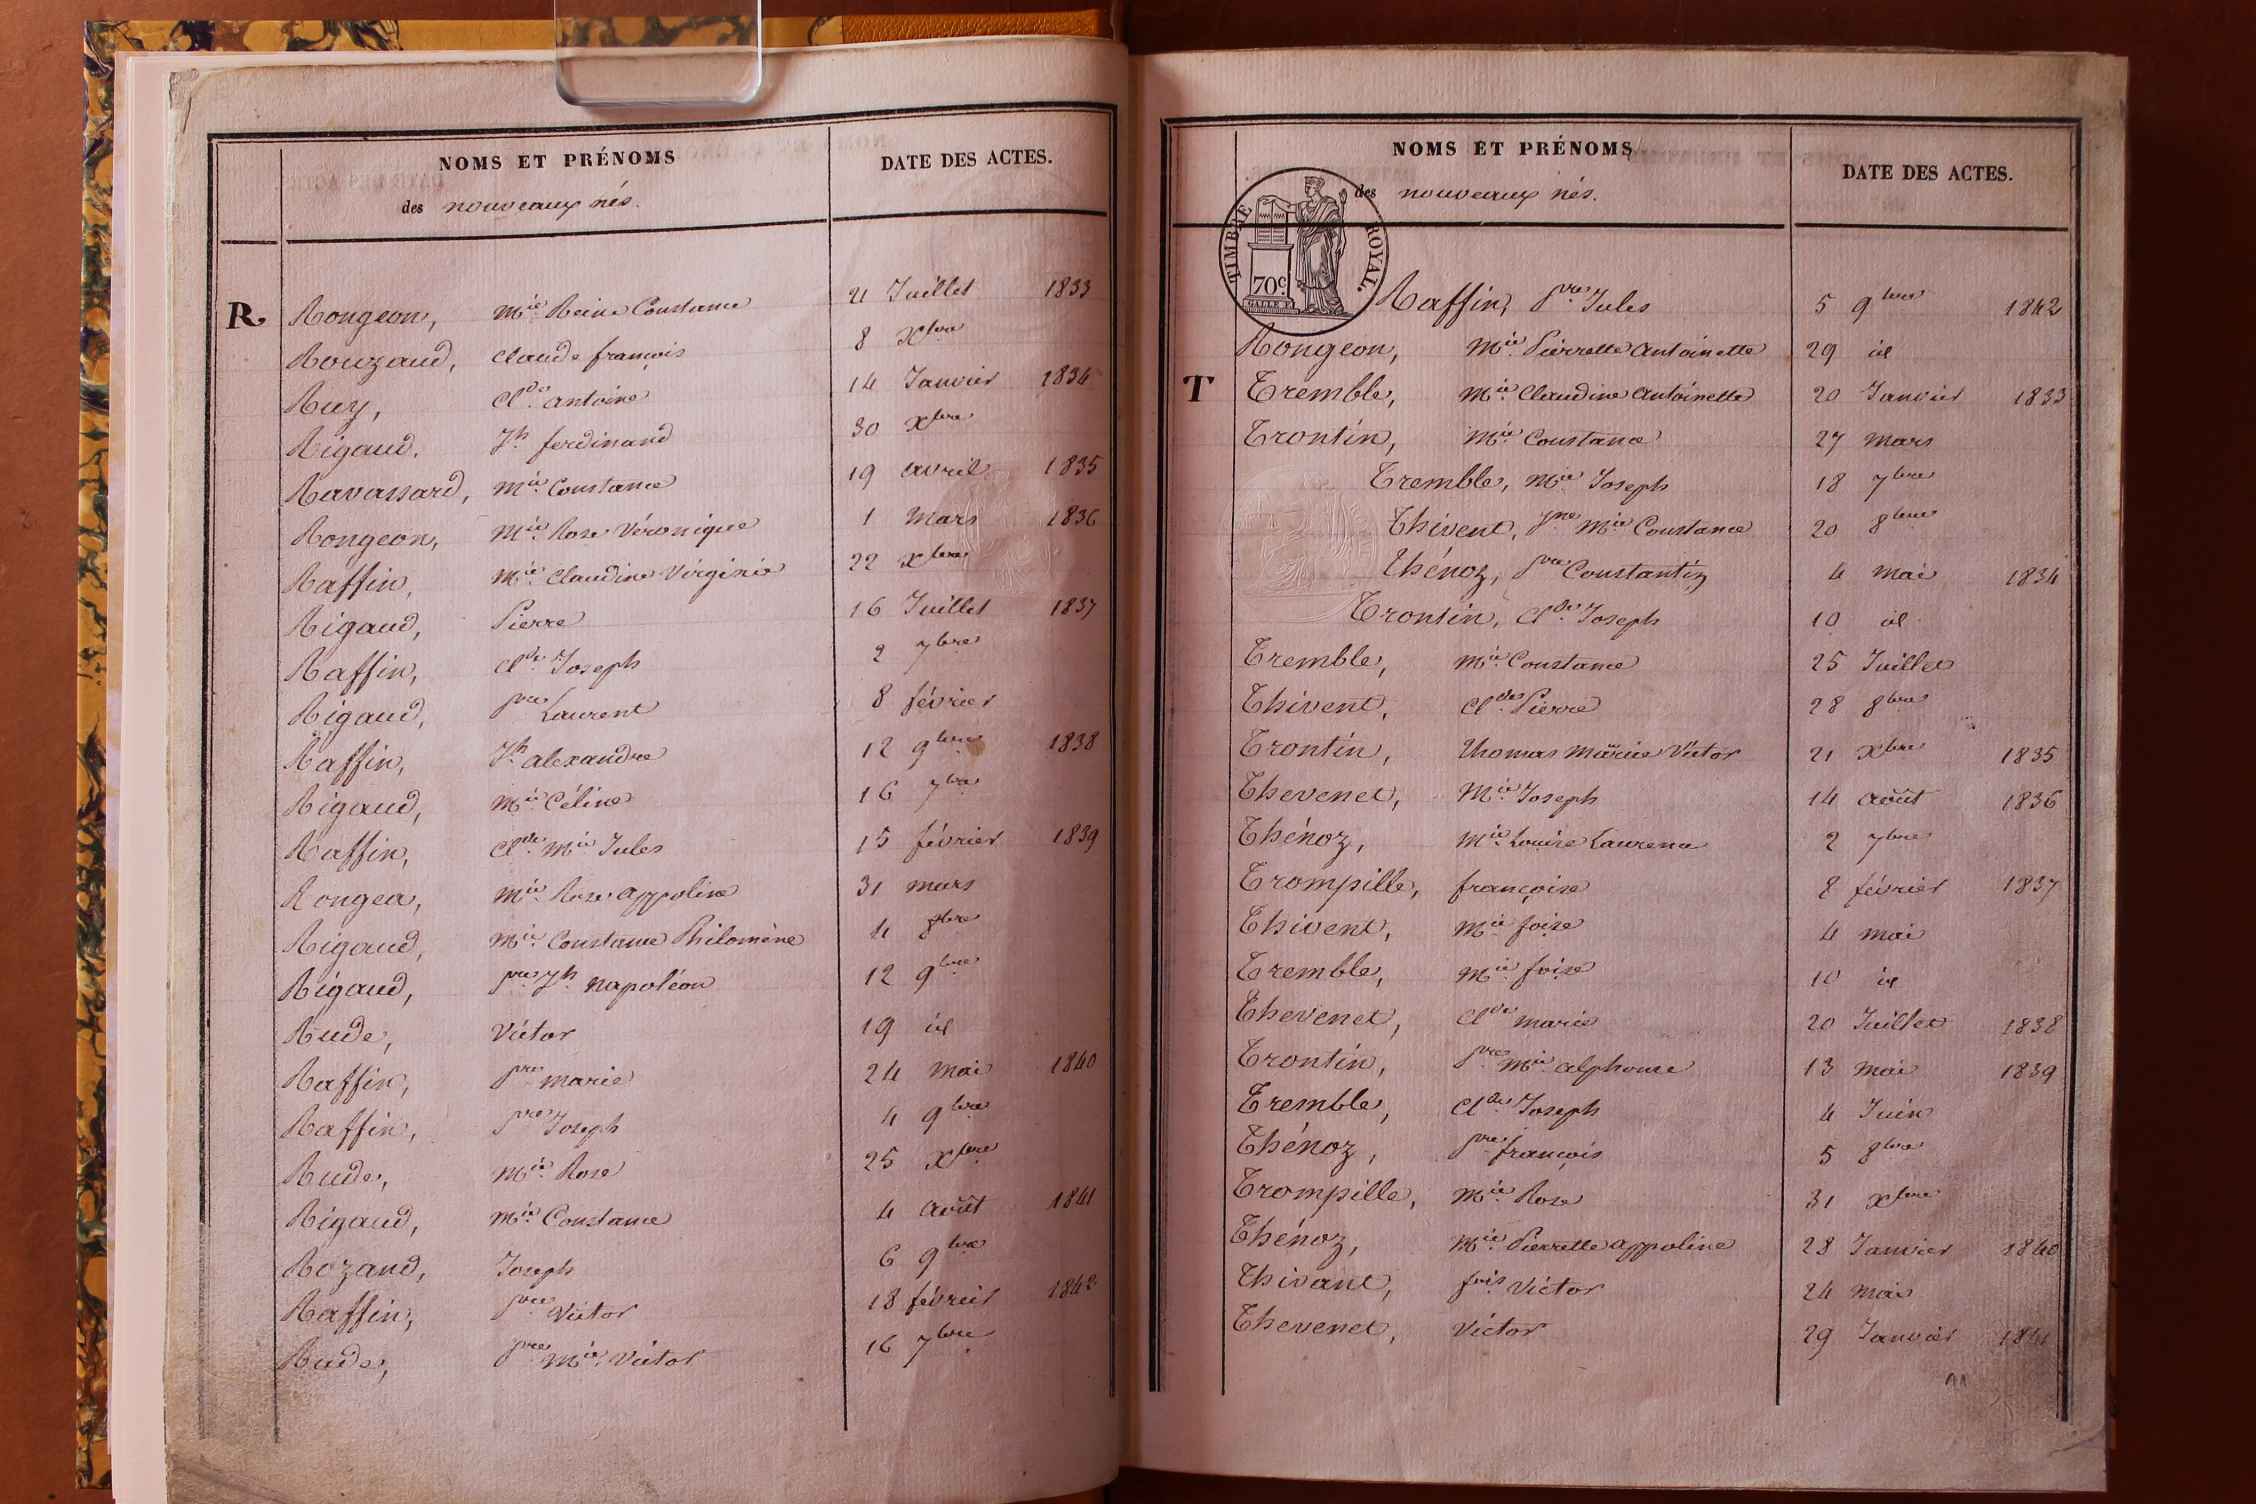 NOMS ET PRÉNOMS DATE DES ACTES.
des nouveaux nés.
R Rongeon, Mie Reine Constance 21 Juillet 1833
Rouzaud, Claude françois 8 Xbre
Ruy, Clde antoine 14 Janvier 1834
Rigaud, Jh ferdinand 30 Xbre
Ravassard, Mie Constance 19 avril 1835
Rongeon, Mie Rose Véronique 1 Mars 1836
Raffin, Mie Claudine Virginie 22 Xbre
Rigaud, Pierre 16 Juillet 1837
Raffin, Clde Joseph 2 7bre
Rigaud, Pre Laurent 8 février
Raffin, Jh alexandre 12 9bre 1838
Rigaud, Mie Céline 16 7bre
Raffin, Clde Mie Jules 15 février 1839
Rongea, Mie Rose appoline 31 mars
Rigaud, Mie Constance Philomène 4 8bre
Rigaud, Pre Jh Napoléon 12 9bre
Rude, Victor 19 id
Raffin, Pre marie 24 Mai 1840
Raffin, Pre Joseph 4 9bre
Rude, Mie Rose 25 Xbre
Rigaud, Mie Constance 4 août 1841
Rozand, Joseph 6 9bre
Raffin, Pre Victor 18 février 1842
Rude, Pre Mie Victor 16 7bre
NOMS ET PRÉNOMS DATE DES ACTES.
des nouveaux nés.
TIMBRE ROYAL.
70c.
Raffin, Pre Jules 5 9bre 1842
Rongeon, Mie Pierrette antoinette 29 id
T Tremble, Mie Claudine antoinette 20 Janvier 1833
Trontin, Mie Constance 27 Mars
Tremble, Mie Joseph 18 7bre
Thivent, Jne Mie Constance 20 8bre
Thénoz, Pre Constantin 4 Mai 1834
Trontin, Clde Joseph 10 id
Tremble, Mie Constance 25 Juillet
Thivent, Clde Pierre 28 8bre
Trontin, Thomas Marie Victor 21 Xbre 1835
Thevenet, Mie Joseph 14 août 1836
Thénoz, Mie Louise Laurence 2 7bre
Trompille, françoise 8 février 1837
Thivent, Mie foise 4 mai
Tremble, Mie foise 10 id
Thevenet, Clde marie 20 Juillet 1838
Trontin, Pre Mie alphonse 13 Mai 1839
Tremble, Clde Joseph 4 Juin
Thénoz, Pre françois 5 8bre
Trompille, Mie Rose 31 Xbre
Thénoz, Mie Pierrette appoline 28 Janvier 1840
Thivant, fois Victor 24 Mai
Thevenet, Victor 29 Janvier 1841